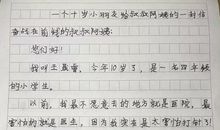 一个十岁小朋友给叔叔阿姨的一封信
奋战在前线的叔叔阿姨:
您们好!
我叫王晨萱,今年10岁了,是一名四年级
的小学生。
以前,我最不愿意去的地方就是医院,最
害怕的就是医生,因为我实在是太害怕打针了!